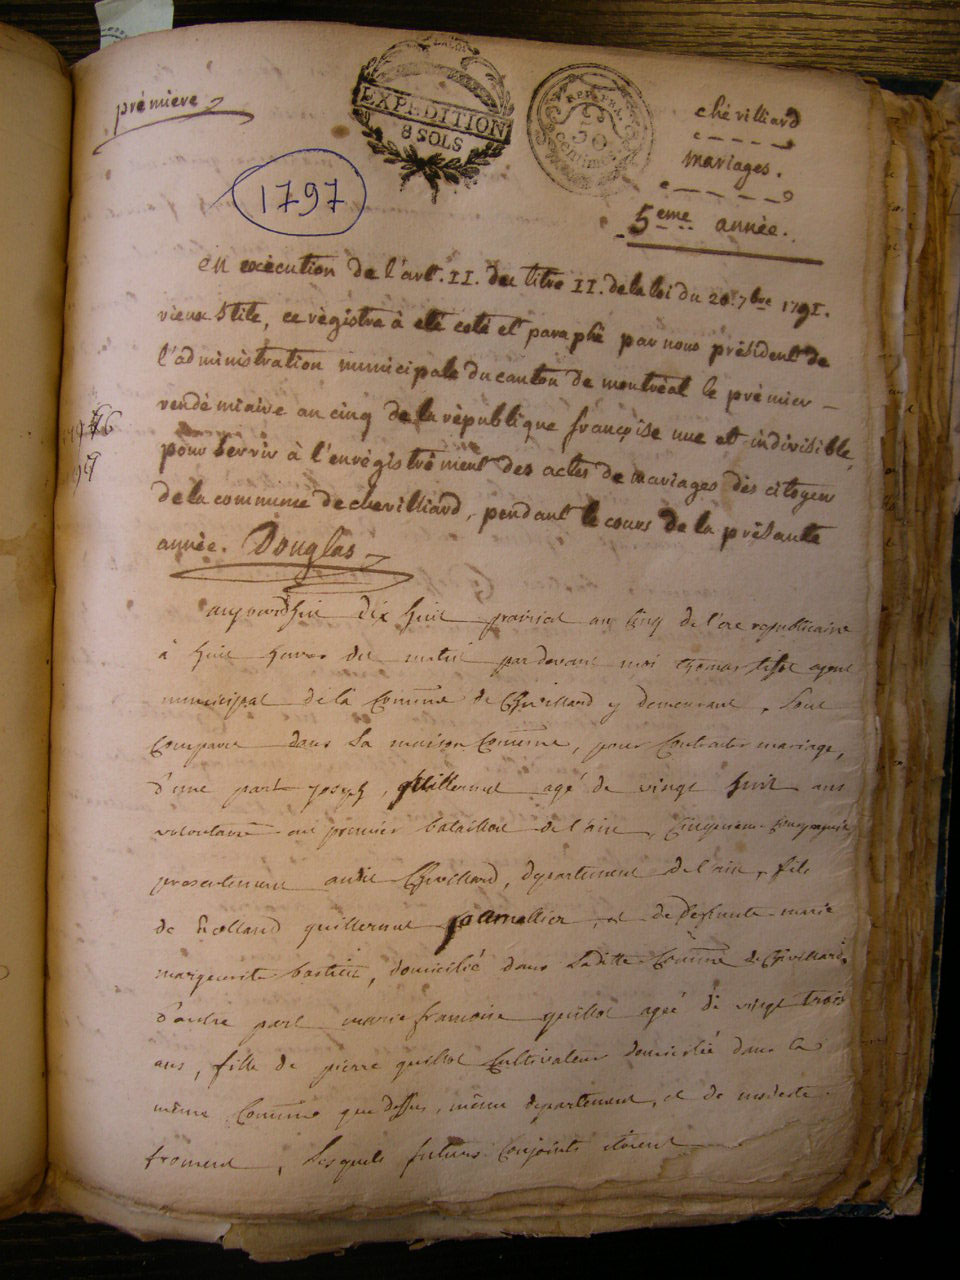 prémiere
EXPEDITION
8 SOLS
REP. FRA.
50
centimes
chévilliard
mariages.
5eme année.
1797
en exècution de l'art. II. du titre II. de la loi du 20. 7bre 1791.
vieux Stile, ce régistre à eté coté et paraphé par nous président de
l'administration municipale du canton de montréal le prémier
vendèmiaire an cinq de la rèpublique françoise une et indivisible,
pour Servir à l'enrégistrément des actes de mariages des citoyens
de la commune de chevilliard, pendant le cours de la présante
année. Douglas
aujourd'huit dix huit prairial an cinq de l'ere republicaine
à huit heures du matin par devant moi thomas tissot agent
municipal de la Commune de Chevillard y demeurant, Sont
Comparus dans La maison Commune, pour Contracter mariage,
d'une part joseph guillermet agé de vingt huit ans
volontaire au premier bataillon de l'ain,
presentement audit Chevillard, département de l'ain, fils
de Rolland guillermet et de deffunte marie
marguerite bastien, domicilié dans Ladite Commune de Chevillard,
d'autre part marie françoise guillot agée de vingt trois
ans, fille de pierre guillot Cultivateur domicilié dans la
même Commune que dessus, même departement, et de modeste
, Lesquels futurs Conjoints étoient